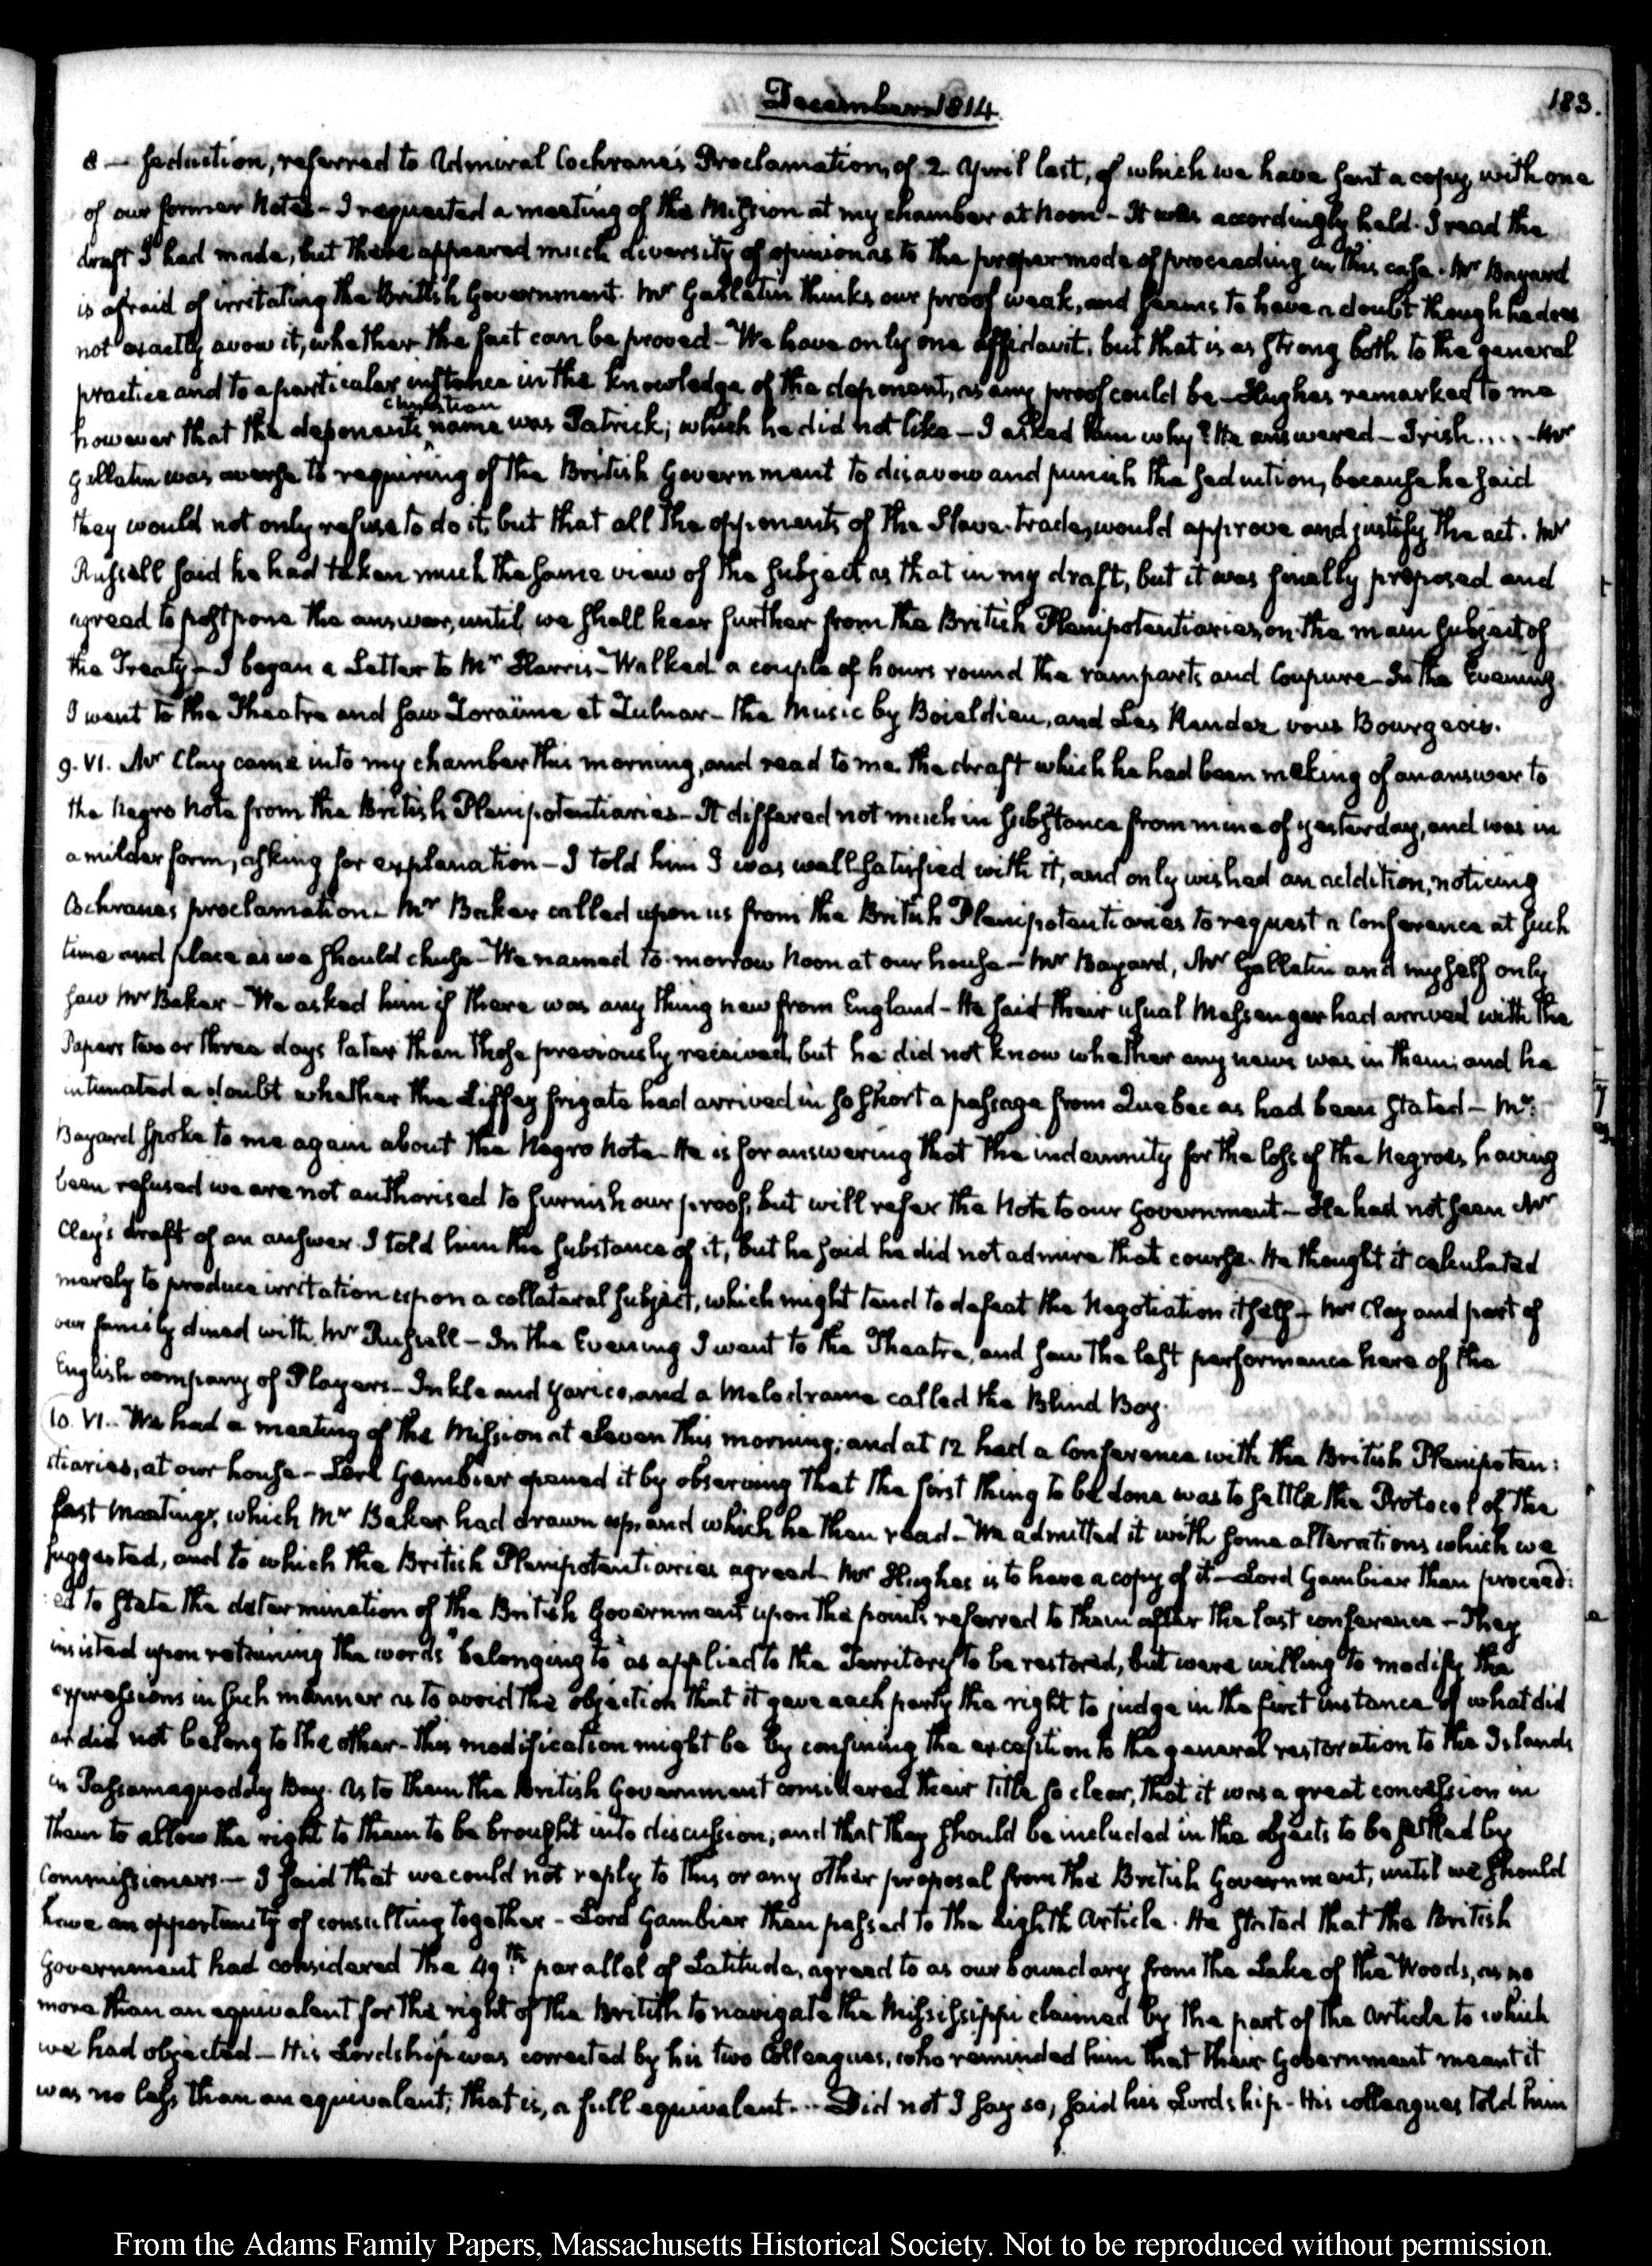 December 1814.
183.
8 — seduction, referred to Admiral Cochrane's Proclamation, of 2. April last, of which we have sent a copy, with one
of our former Notes - I requested a meeting of the Mission at my chamber at Noon - It was accordingly held. I read the
draft I had made, but there appeared much diversity of opinion as to the proper mode of proceeding in this case. Mr Bayard
is afraid of irritating the British Government. Mr Gallatin thinks our proof weak, and seems to have a doubt though he does
not exactly avow it, whether the fact can be proved - We have only one affidavit, but that is as strong both to the general
practice and to a particular instance in the knowledge of the deponent, as any proof could be - Hughes remarked to me
christian
however that the deponent's name was Patrick; which he did not like - I asked him why? He answered - Irish.... - Mr
Gallatin was averse to requiring of the British Government to disavow and punish the seduction, because he said
they would not only refuse to do it, but that all the opponents of the Slave-trade, would approve and justify the act. Mr
Russell said he had taken much the same view of the subject as that in my draft, but it was finally proposed and
agreed to postpone the answer, until we shall hear further from the British Plenipotentiaries, on the main subject of
the Treaty - I began a Letter to Mr Harris - Walked a couple of hours round the ramparts and Coupure - In the Evening
I went to the Theatre and saw Zoraïme et Zulnar - the Music by Boieldieu, and Les Rendez vous Bourgeois.
9. VI. Mr Clay came into my chamber this morning, and read to me the draft which he had been making of an answer to
the Negro Note from the British Plenipotentiaries - It differed not much in substance from mine of yesterday, and was in
a milder form, asking for explanation - I told him I was well satisfied with it, and only wished an addition, noticing
Cochranes proclamation. Mr Baker called upon us from the British Plenipotentiaries to request a Conference at such
time and place as we should chuse - We named to-morrow Noon at our house - Mr Bayard, Mr Gallatin and myself only
saw Mr Baker - We asked him if there was any thing new from England - He said their usual Messenger had arrived with the
Papers two or three days later than those previously received, but he did not know whether any news was in them; and he
intimated a doubt whether the Liffey frigate had arrived in so short a passage from Quebec as had been stated - Mr.
Bayard spoke to me again about the Negro Note - He is for answering that the indemnity for the loss of the Negroes having
been refused we are not authorised to furnish our proof, but will refer the Note to our Government - He had not seen Mr
Clay's draft of an answer. I told him the substance of it, but he said he did not admire that course. He thought it calculated
merely to produce irritation upon a collateral subject, which might tend to defeat the Negotiation itself - Mr Clay and part of
our family dined with Mr Russell - In the Evening I went to the Theatre, and saw the last performance here of the
English company of Players - Inkle and Yarico, and a Melodrame called the Blind Boy.
10. VI. We had a meeting of the Mission at eleven this morning; and at 12 had a Conference with the British Plenipoten:
:tiaries, at our house - Lord Gambier opened it by observing that the first thing to be done was to settle the Protocol of the
last Meetings, which Mr Baker had drawn up, and which he then read - We admitted it with some alterations which we
suggested, and to which the British Plenipotentiaries agreed - Mr Hughes is to have a copy of it - Lord Gambier then proceed:
:ed to state the determination of the British Government upon the points referred to them after the last conference - They
insisted upon retaining the words "belonging to" as applied to the Territory to be restored, but were willing to modify the
expressions in such manner as to avoid the objection that it gave each party the right to judge in the first instance of what did
or did not belong to the other - this modification might be by confining the exception to the general restoration to the Islands
in Passamaquoddy Bay. As to them the British Government considered their title so clear, that it was a great concession in
them to allow the right to them to be brought into discussion; and that they should be included in the objects to be settled by
Commissioners - I said that we could not reply to this or any other proposal from the British Government, until we should
have an opportunity of consulting together - Lord Gambier then passed to the Eighth Article. He stated that the British
Government had considered the 49th. parallel of Latitude, agreed to as our boundary from the Lake of the Woods, as no
more than an equivalent for the right of the British to navigate the Mississippi claimed by the part of the Article to which
we had objected - His Lordship was corrected by his two Colleagues, who reminded him that their Government meant it
was no less than an equivalent; that is, a full equivalent... Did not I say so, said his Lordship - His colleagues told him
From the Adams Family Papers, Massachusetts Historical Society. Not to be reproduced without permission.